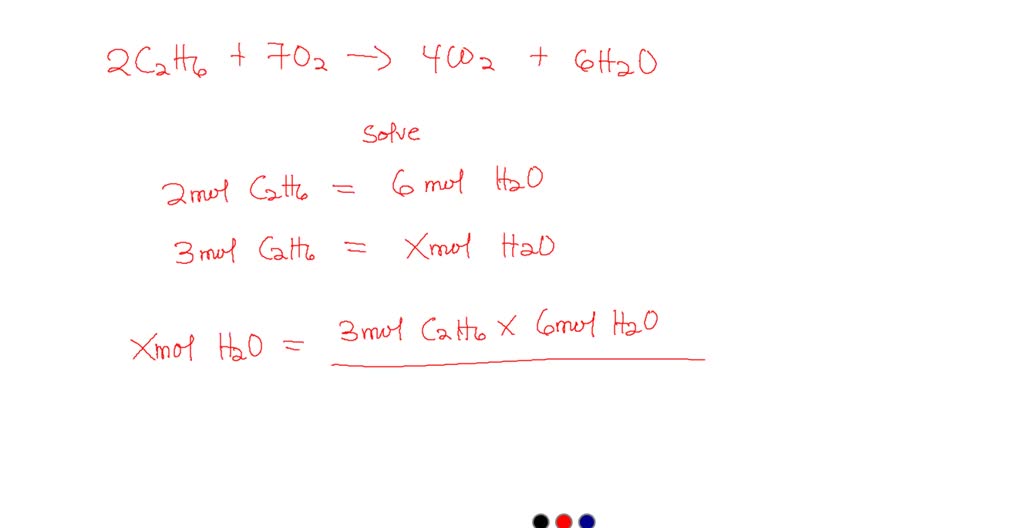 2C₂H₆ + 7O₂ → 4CO₂ + 6H₂O
Solve
2mol C₂H₆ = 6 mol H₂O
3mol C₂H₆ = Xmol H₂O
Xmol H₂O = 3mol C₂H₆ X 6mol H₂O